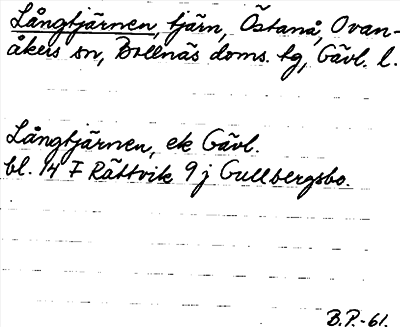 Långtjärnen, tjärn, Östanå, Ovan-
åkers sn, Bollnäs doms. tg, Gävl. l.
Långtjärnen, ek Gävl.
bl. 14 F Rättvik 9 j Gullbergsbo.
B.P.-61.